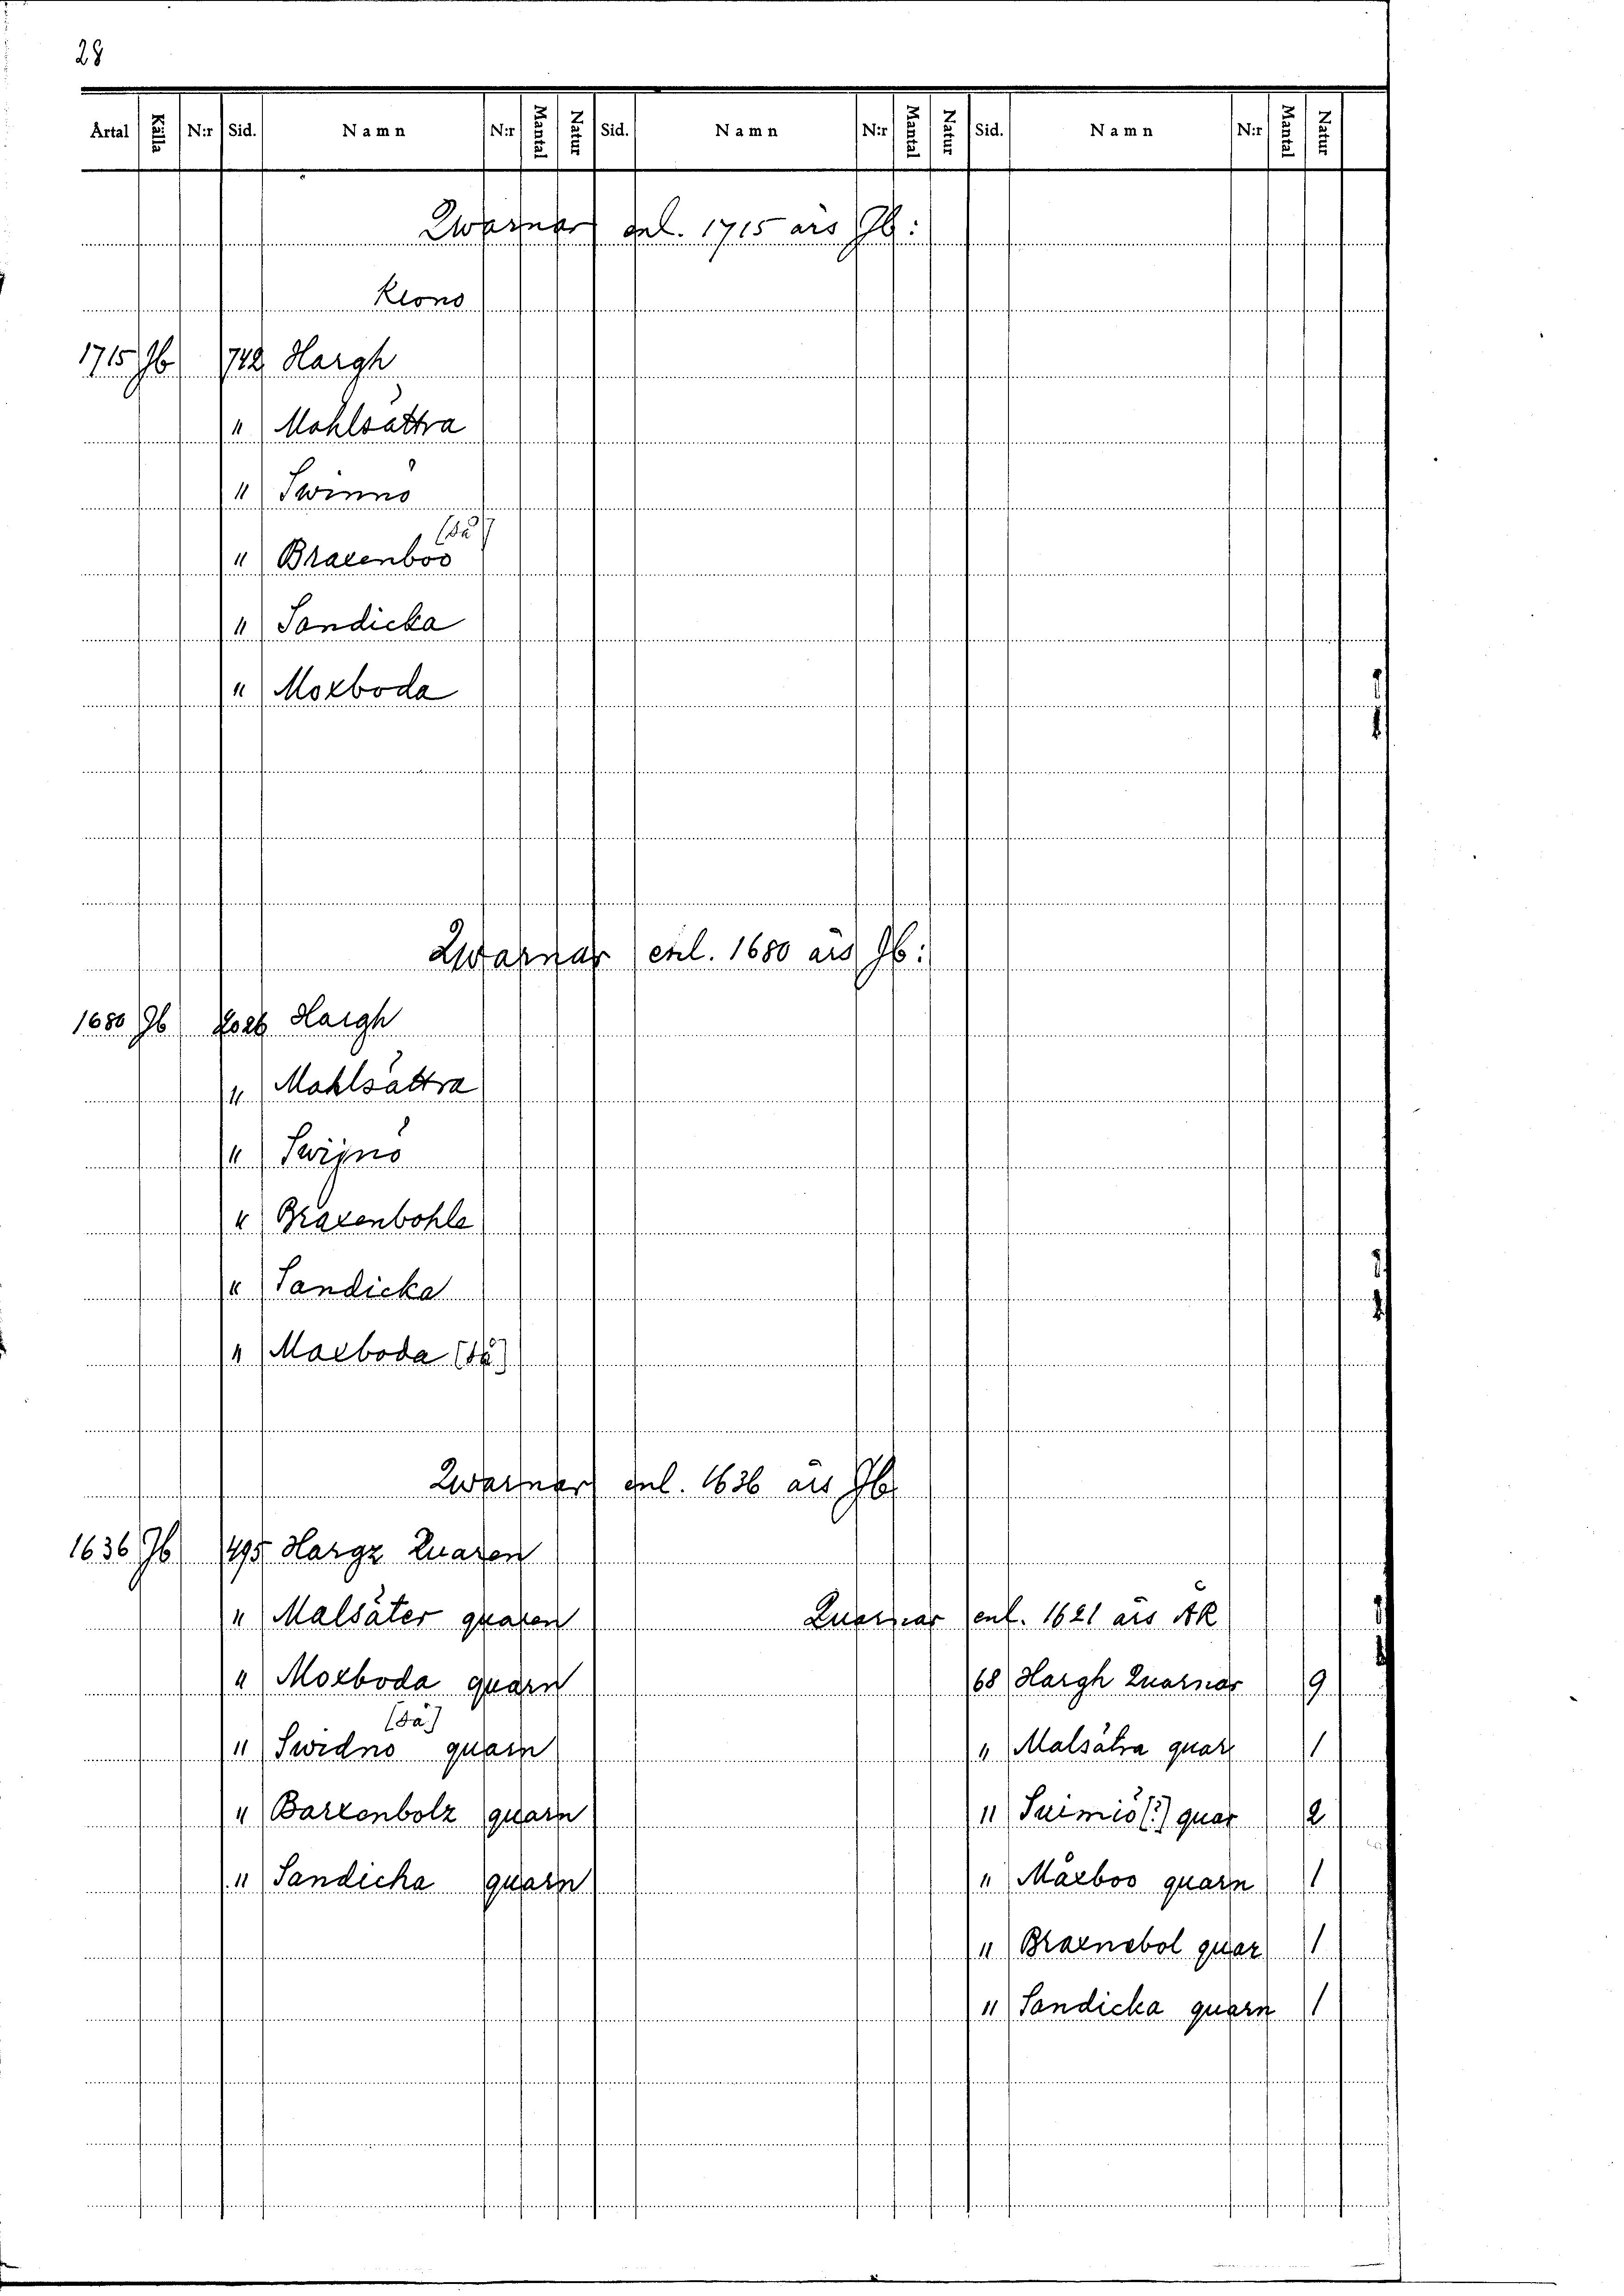 28
Årtal Källa N:r Sid. Namn N:r Mantal Natur Sid. Namn N:r Mantal Natur Sid. Namn N:r Mantal Natur
Qwarnar enl. 1715 års Jb:
Krono
1715 Jb 742 Hargh
" Mahlsättra
" Swinnö
[så]
" Braxenboo
" Sandicka
" Moxboda
Qwarnar enl. 1680 års Jb:
1680 Jb 2026 Hargh
" Mahlsättra
" Swijnö
" Braxenbohle
" Sandicka
" Maxboda [så]
Qwarnar enl. 1636 års Jb
1636 Jb 495 Hargz Quaren
" Malsäter quaren
" Moxboda quarn
[så]
" Swidno quarn
" Barxenbolz quarn
" Sandicha quarn
Quarnar enl. 1621 års ÄR
68 Hargh Quarnar 9
" Malsätra quar 1
" Suimiö [?] quar 2
" Måxboo quarn 1
" Braxnebol quar 1
" Sandicka quarn 1